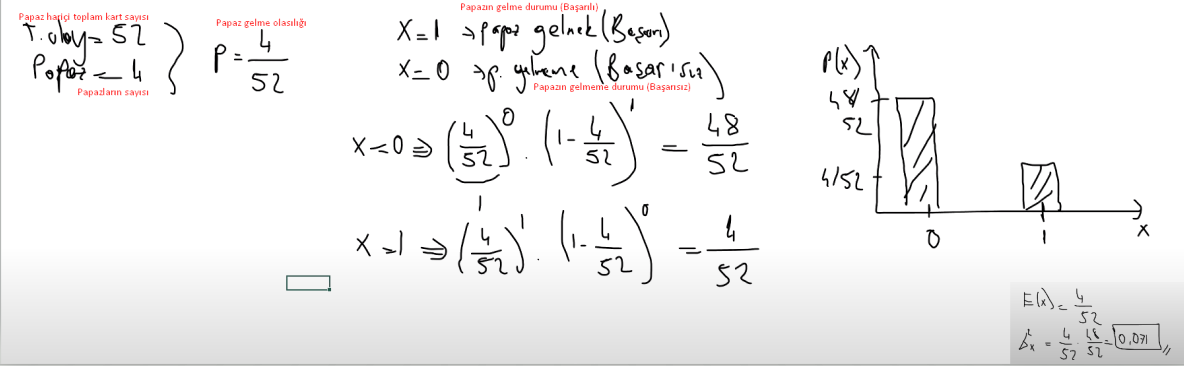 Papaz hariçi toplam kart sayısı
T. olay = 52
Papaz = 4
Papazların sayısı
Papaz gelme olasılığı
P = 4/52
Papazın gelme durumu (Başarılı)
X=1 ⇒ papaz gelmek (Başarı)
X=0 ⇒ p. gelmeme (Başarısız)
Papazın gelmeme durumu (Başarısız)
X=0 ⇒ (4/52)^0 . (1 - 4/52)^1 = 48/52
1
X=1 ⇒ (4/52)^1 . (1 - 4/52)^0 = 4/52
P(x)
48/52
4/52
0 1 x
E(x) = 4/52
σ²x = 4/52 . 48/52 = 0,071 //